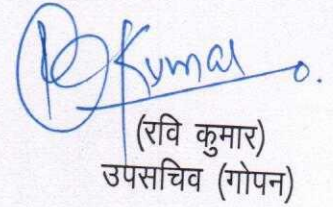 Kumar
(रवि कुमार)
उपसचिव (गोपन)